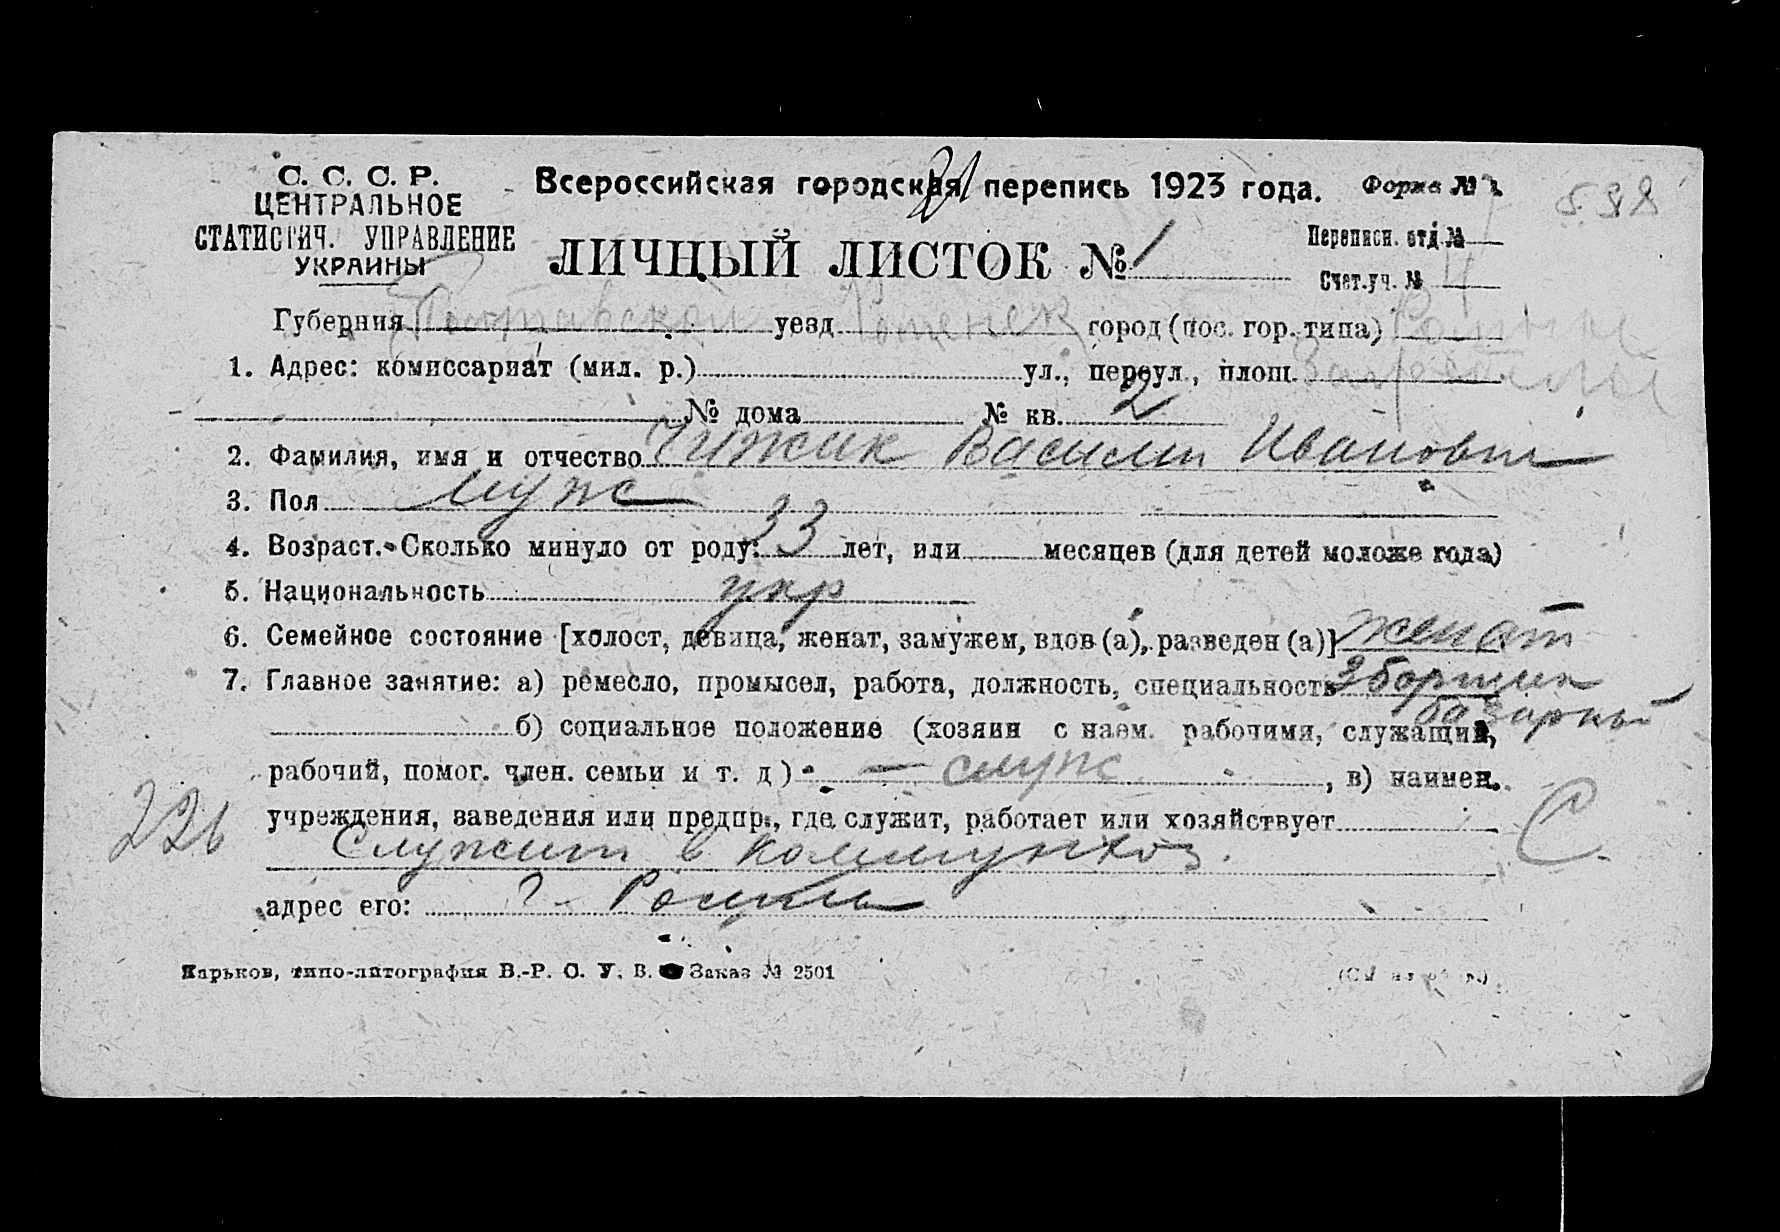 С. С. С. Р.
ЦЕНТРАЛЬНОЕ
СТАТИСТИЧ. УПРАВЛЕНИЕ
УКРАИНЫ
Всероссийская городская перепись 1923 года.
Форма №
588
ЛИЧНЫЙ ЛИСТОК № 1
Переписн. отд. №
Счет.уч. №
Губерния Полтавской уезд Роменск город (пос. гор. типа) Ромны
1. Адрес: комиссариат (мил. р.) ул., переул., площ.
№ дома № кв. 2
2. Фамилия, имя и отчество Чижик Василий Иванович
3. Пол муж
4. Возраст. Сколько минуло от роду: 33 лет, или месяцев (для детей моложе года)
5. Национальность укр
6. Семейное состояние [холост, девица, женат, замужем, вдов (а), разведен (а)] женат
7. Главное занятие: а) ремесло, промысел, работа, должность, специальность Зборщик
базарный
б) социальное положение (хозяин с наем. рабочими, служащий,
рабочий, помог. член. семьи и т. д) - служ , в) наимен.
учреждения, заведения или предпр., где служит, работает или хозяйствует
226
С.
Служит в коммунхоз.
адрес его: г. Ромны
Харьков, типо-литография В.-Р. С. У. В. Заказ № 2501